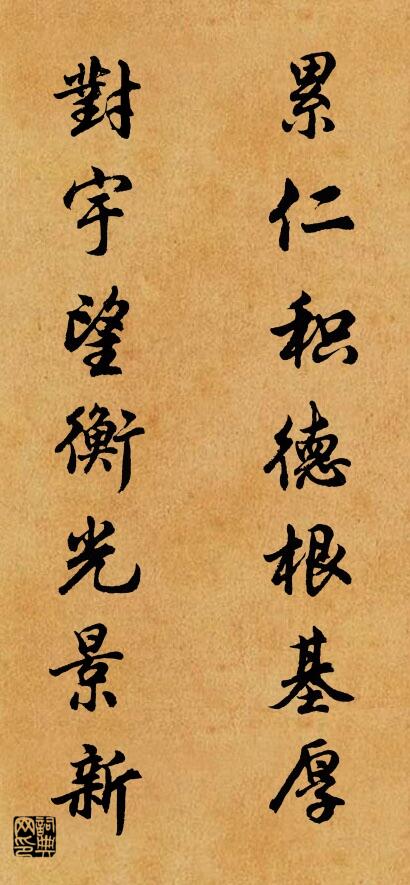 累仁积德根基厚
對宇望衡光景新
詞典网印